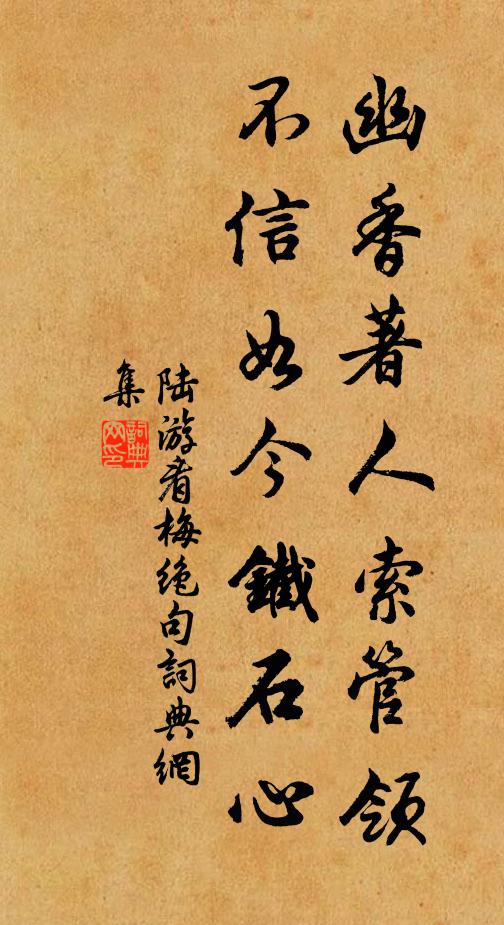 幽香著人索管領
不信如今鐵石心
陸游看梅絶句詞典網
集
詞典網印